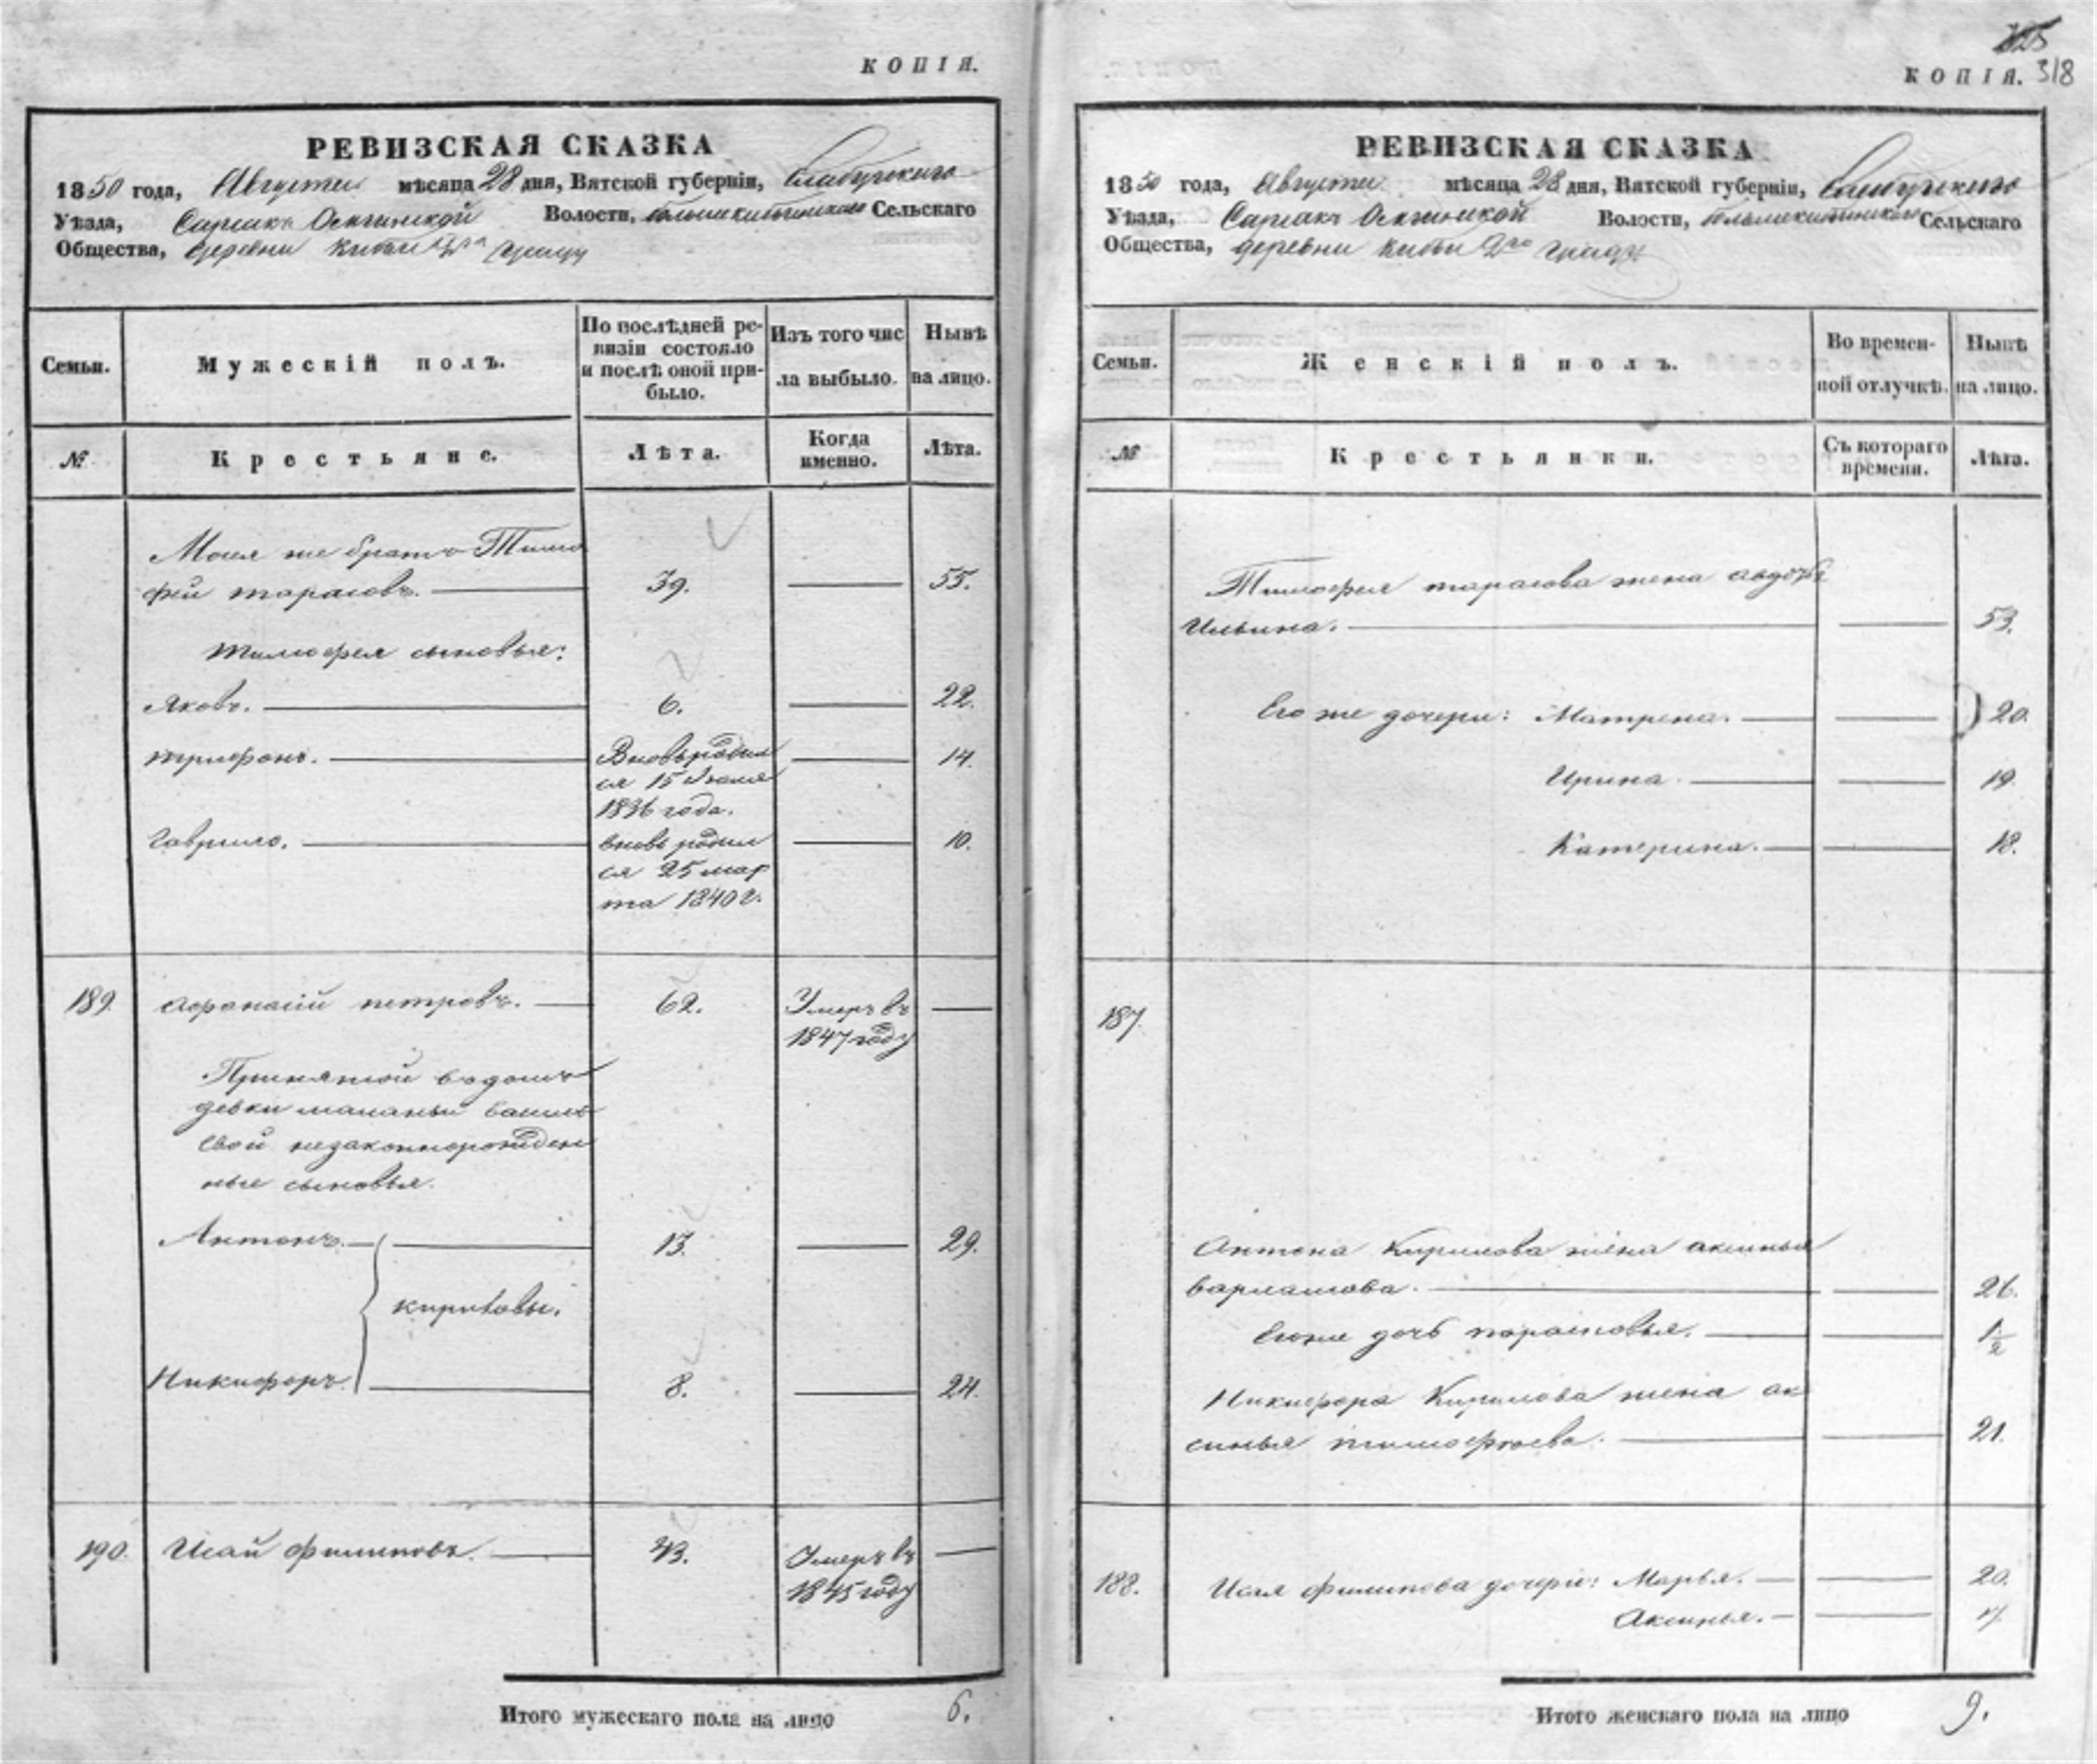 КОПІЯ.
РЕВИЗСКАЯ СКАЗКА
1850 года, Августа мѣсяца 28 дня, Вятской губерніи, Елабугского
Уѣзда, Волости, Сельскаго
Общества, деревни
Семьи.
Мужескій полъ.
По послѣдней ре-
визіи состояло
и послѣ оной при-
было.
Изъ того чис
ла выбыло.
Нынѣ
на лицо.
№
Крестьяне.
Лѣта.
Когда
именно.
Лѣта.
Моея же братъ Тимо
фей тарасовъ. 39. 55.
тимофея сыновья:
Яковъ. 6. 22.
трифонъ. Вновь родил 14.
ся 15 Іюля
1836 года.
Гаврило. вновь родил 10.
ся 25 мар
та 1840 г.
189. Афонасій петровъ. 62. Умеръ въ
1847 году
Принятой въ домъ
девки маланьи Василь
евой незаконнорожден
ные сыновья.
Антонъ. 13. 29.
кириловы.
Никифоръ 8. 24.
190. Исай филиповъ. 43. Умеръ въ
1845 году
Итого мужескаго пола на лицо 6.
325
КОПІЯ. 318
РЕВИЗСКАЯ СКАЗКА
1850 года, Августа мѣсяца 28 дня, Вятской губерніи, Елабугского
Уѣзда, Волости, Сельскаго
Общества, деревни
Семьи.
Женскій полъ.
Во времен-
ной отлучкѣ.
Нынѣ
на лицо.
№
Крестьянки.
Съ котораго
времени.
Лѣта.
Тимофея тарасова жена авдотья
Ильина. 53.
Его же дочери: Матрена. 20.
Ирина 19.
Катерина. 18.
187.
Антона Кирилова жена аксинья
варламова. 26.
Его же дочь парасковья. 1/2
Никифора Кирилова жена ак
синья тимофѣева. 21.
188. Исая филипова дочери: Марья. 20.
Аксинья. 7.
Итого женскаго пола на лицо 9.